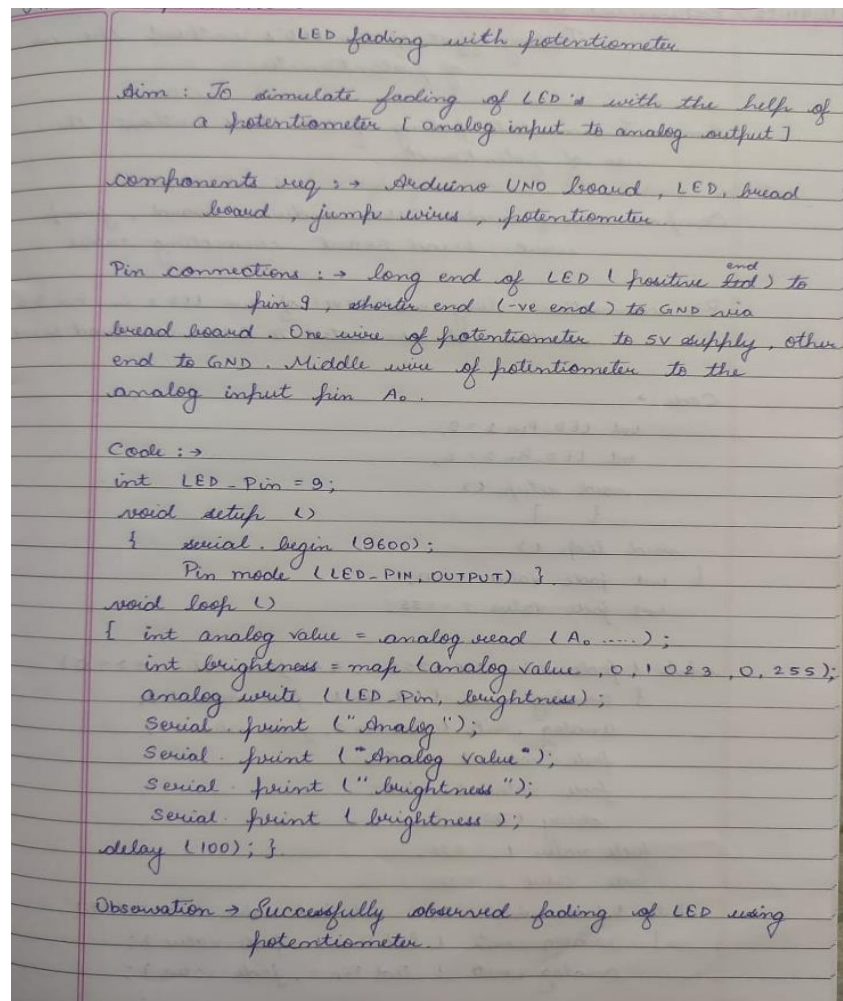 LED fading with potentiometer
Aim : To simulate fading of LED's with the help of
a potentiometer [ analog input to analog output ]
components req : → Arduino UNO board, LED, bread
board, jump wires, potentiometer.
Pin connections : → long end of LED ( positive end ) to
pin 9, shorter end (-ve end ) to GND via
bread board. One wire of potentiometer to 5V supply, other
end to GND. Middle wire of potentiometer to the
analog input pin A₀.
Code : →
int LED_Pin = 9;
void setup ()
{ serial . begin (9600);
Pin mode (LED_PIN, OUTPUT) }
void loop ()
{ int analog value = analog read ( A₀ .....);
int brightness = map (analog value , 0, 1023, 0, 255);
analog write ( LED_Pin, brightness);
Serial . print (" Analog ");
Serial . print (" Analog value ");
Serial . print (" brightness ");
Serial . print ( brightness );
delay (100); }
Observation → Successfully observed fading of LED using
potentiometer.